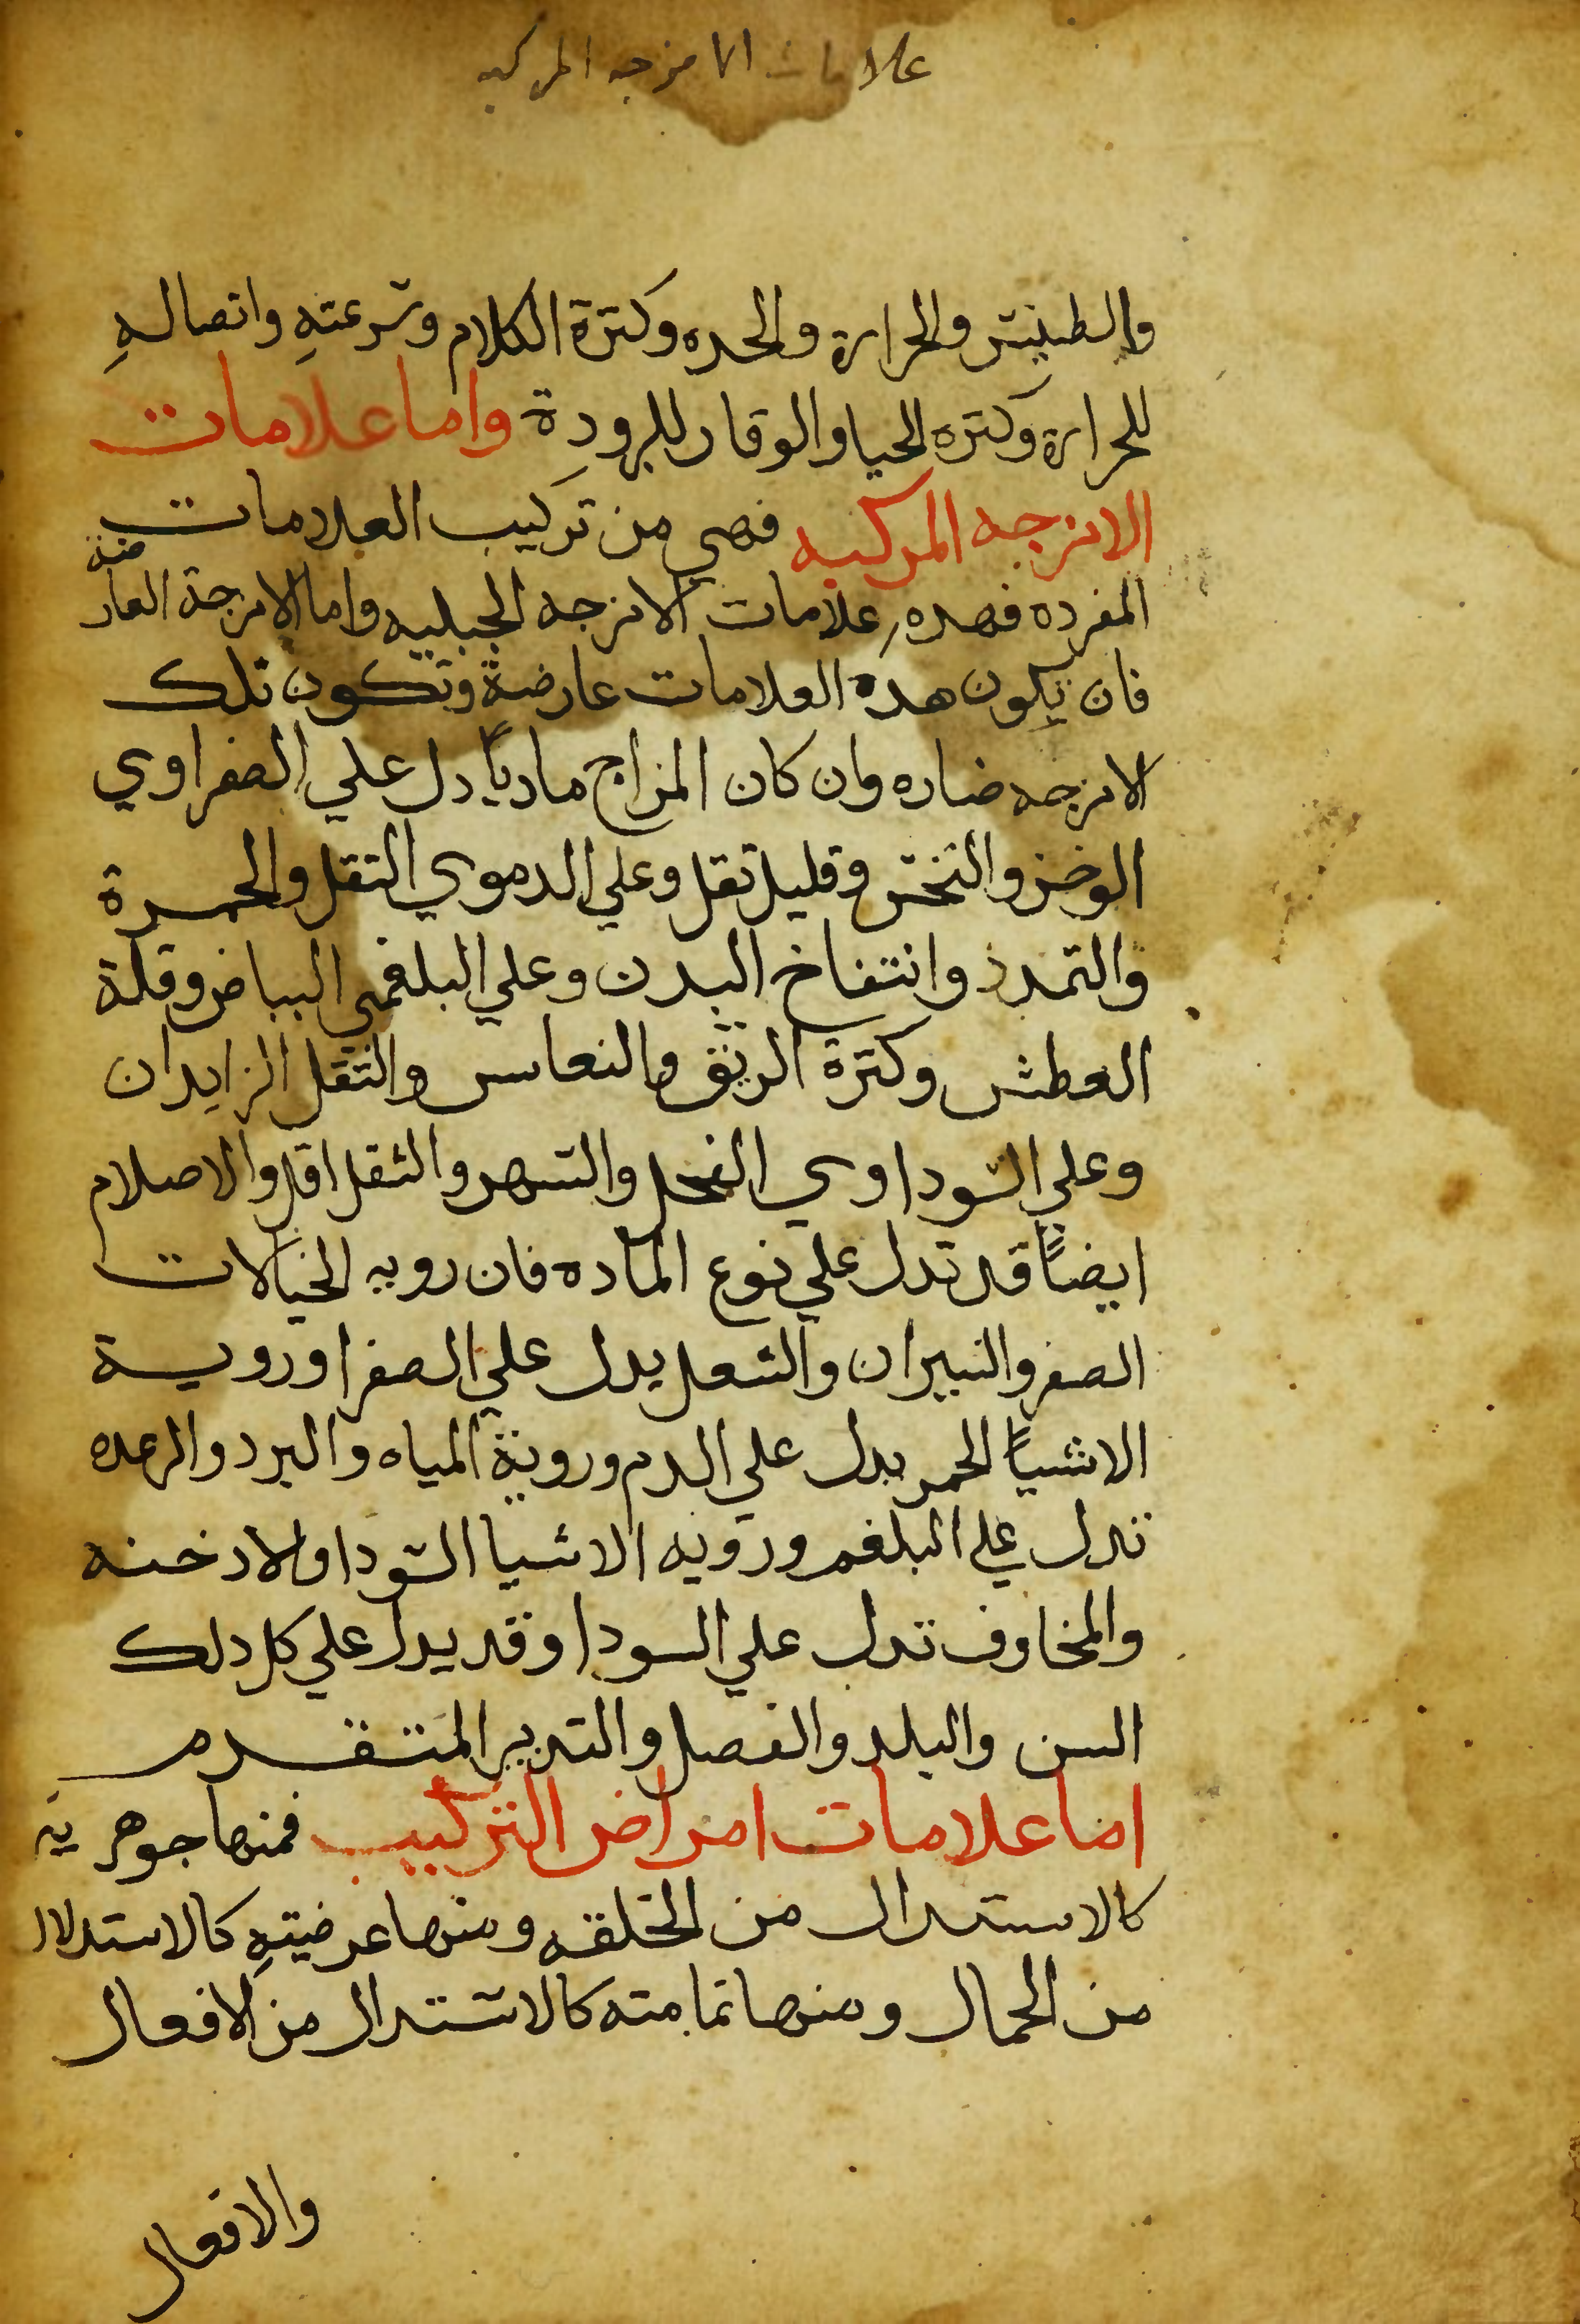 علامات الامزجه المركبه
والطيش والحرارة والحده وكترة الكلام وسرعته واتصاله
للحرارة وكتره الحيا والوقار للبرودة واما علامات
الامزجه المركبه فهي من تركيب العلامات
المفرده فهده علامات الامزجه الجبليه واما الامزجة العارضة
فان يكون هده العلامات عارضة وتكون تلك
الامزجه ضاره وان كان المزاج ماديًا دل علي الصفراوي
الوخز والنخس وقليل تقل وعلي الدموي التقل والحمرة
والتمدد وانتفاخ البدن وعلي البلغمي البياض وقلة
العطش وكترة الريق والنعاس والتقل الزايدان
وعلي السوداوي القحل والسهر والثقل اقل والاحلام
ايضًا قد تدل علي نوع الماده فان رويه الخيالات
الصفر والنيران والشعل يدل علي الصفرا وروية
الاشيأ الحمر يدل علي الدم وروية المياه والبرد والرعده
تدل علي البلغم ورويه الاشيا السودا والادخنه
والمخاوف تدل علي السودا وقد يدل علي كل دلك
السن والبلد والفصل والتدبير المتقدم
اما علامات امراض التركيب فمنها جوهرية
كالاستدال من الخلقه ومنها عرضيته كالاستدلال
من الجمال ومنها تمامته كالاستدال من الافعال
والافعال